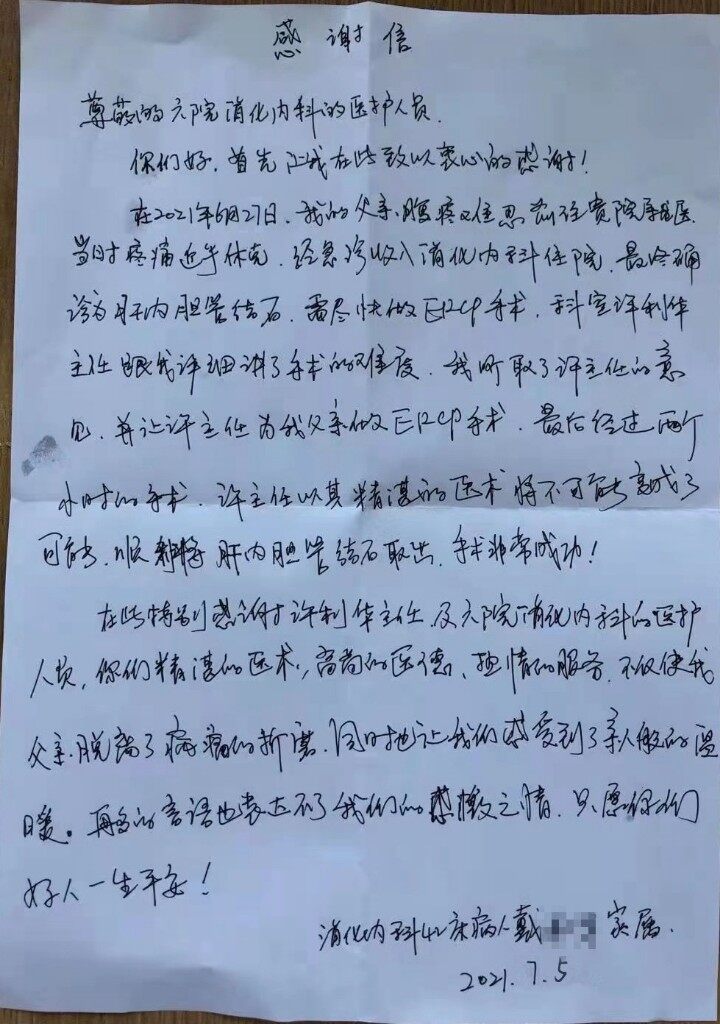 感谢信
尊敬的六院消化内科的医护人员.
你们好,首先让我在此致以衷心的感谢!
在2021年6月27日,我的父亲腹疼难忍前往贵院就医
当时疼痛近乎休克,经急诊收入消化内科住院,最终确
诊为肝内胆管结石,需尽快做ERCP手术,科室许利华
主任跟我详细讲了手术的难度,我听取了许主任的意
见,并让许主任为我父亲做ERCP手术,最后经过两个
小时的手术,许主任以其精湛的医术将不可能变成了
可能,顺利将肝内胆管结石取出,手术非常成功!
在此特别感谢许利华主任及六院消化内科的医护
人员,你们精湛的医术,高尚的医德,热情的服务,不仅使我
父亲脱离了病痛的折磨,同时也让我们感受到了亲人般的温
暖。再多的言语也表达不了我们的感激之情,只愿你们
好人一生平安!
消化内科42床病人戴 家属.
2021.7.5